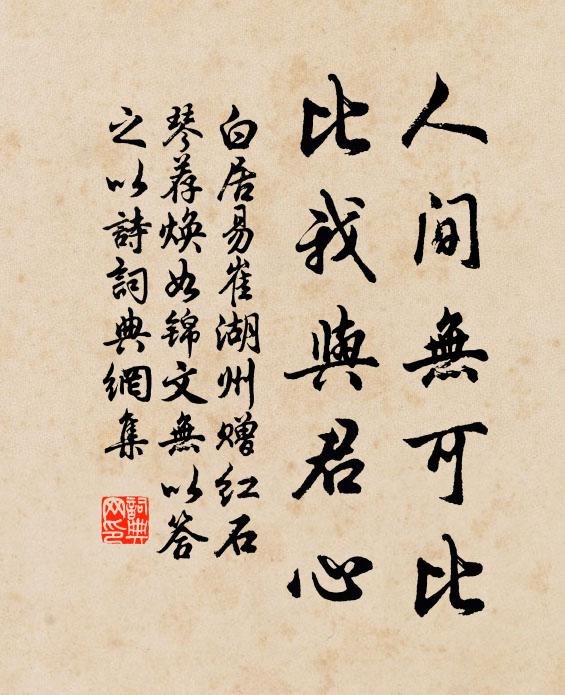 人間無可比
比我與君心
白居易崔湖州赠红石
琴荐焕如锦文無以答
之以詩詞典網集
詞典
网印